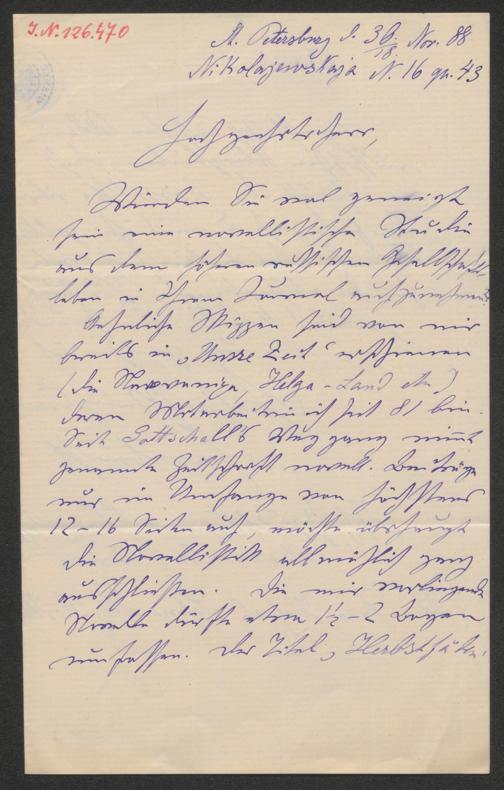 J.N. 126.470
St. Petersburg d. 30./18. Nov. 88
Nikolajewskaja N. 16 qu. 43
Hochgeehrter Herr,
Würden Sie wol geneigt
sein eine novellistische Studie
aus dem höheren russischen Gesellschafts
leben in Ihrem Journal aufzunehmen?
Aehnliche Skizzen sind von mir
bereits in „Unsre Zeit" erschienen
(die Helga-Land etc.)
deren Mitarbeiterin ich seit 81 bin.
Seit Gottschall's Weggang nimt
genannte Zeitschrift novell. Beiträge
nur im Umfange von höchstens
12-16 Seiten auf, möchte überhaupt
die Novellistik allmählich ganz
ausschließen. Die mir vorliegende
Novelle dürfte etwa 1½-2 Bogen
umfassen. Der Titel „Herbstfäden"